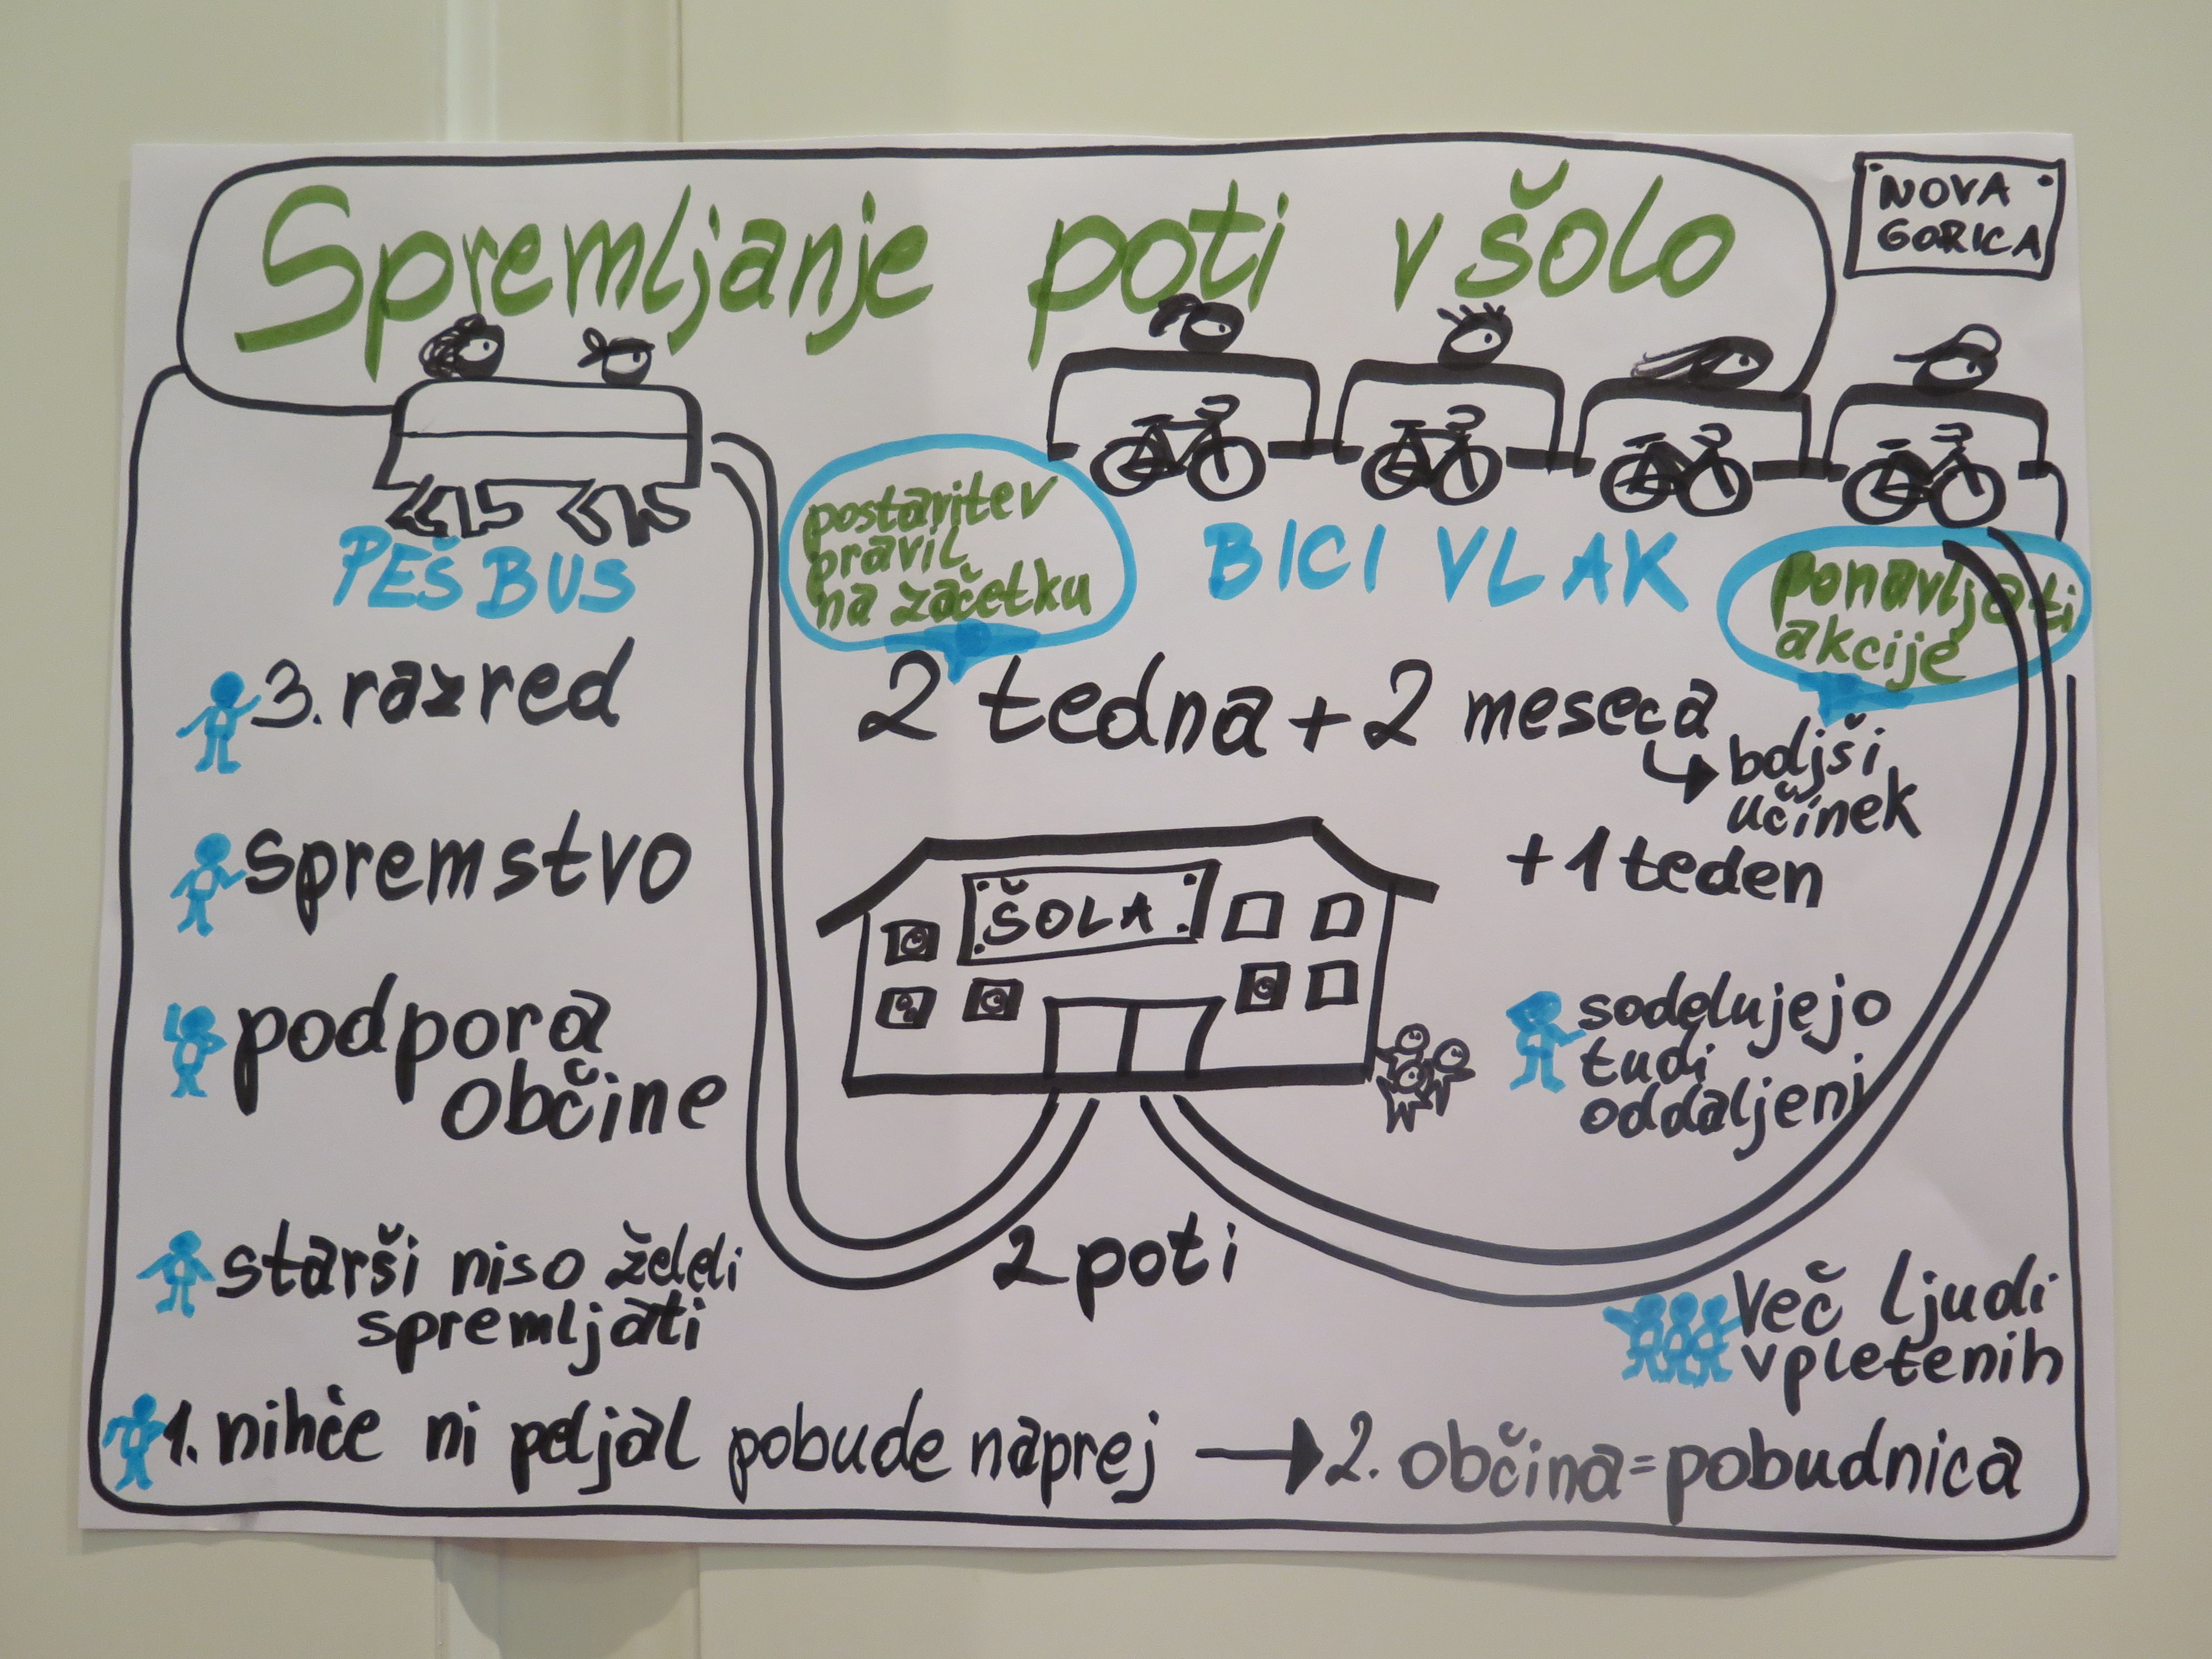 Spremljanje poti v šolo
NOVA
GORICA
PEŠ BUS
3. razred
spremstvo
podpora
občine
starši niso želeli
spremljati
postaritev
pravil
na začetku
BICI VLAK
ponavljati
akcije
2 tedna + 2 meseca
boljši
učinek
+ 1 teden
ŠOLA
sodelujejo
tudi
oddaljeni
2 poti
Več ljudi
vpletenih
1. nihče ni peljal pobude naprej → 2. občina = pobudnica